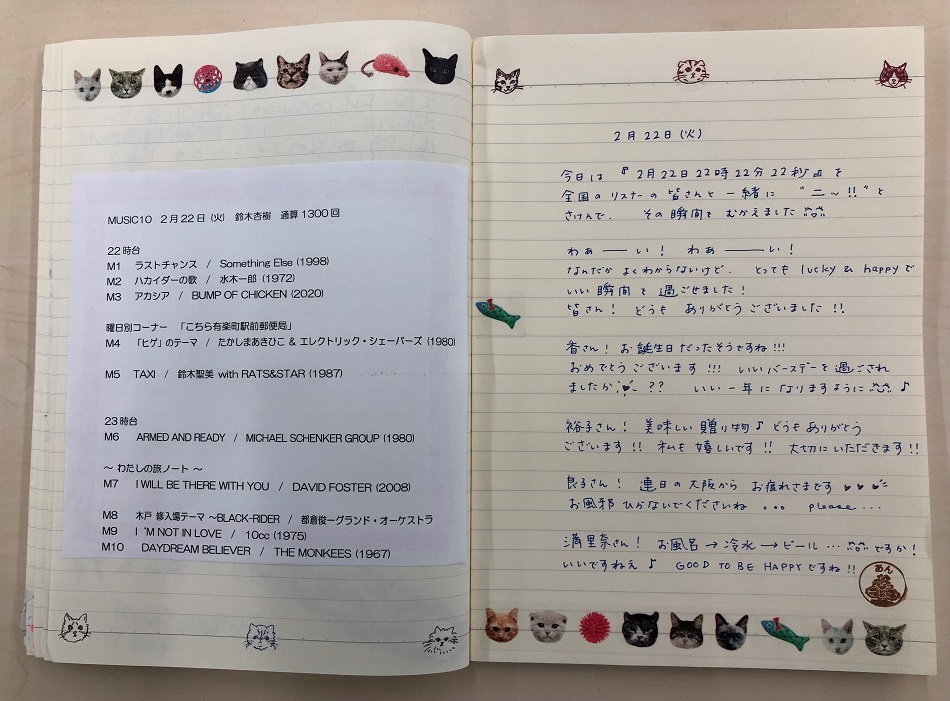 MUSIC10 2月22日 (火) 鈴木杏樹 通算1300回
22時台
M1 ラストチャンス / Something Else (1998)
M2 ハカイダーの歌 / 水木一郎 (1972)
M3 アカシア / BUMP OF CHICKEN (2020)
曜日別コーナー 「こちら有楽町駅前郵便局」
M4 「ヒゲ」のテーマ / たかしまあきひこ & エレクトリック・シェーバーズ (1980)
M5 TAXI / 鈴木聖美 with RATS&STAR (1987)
23時台
M6 ARMED AND READY / MICHAEL SCHENKER GROUP (1980)
～ わたしの旅ノート ～
M7 I WILL BE THERE WITH YOU / DAVID FOSTER (2008)
M8 木戸 修入場テーマ ～BLACK-RIDER / 都倉俊一グランド・オーケストラ
M9 I 'M NOT IN LOVE / 10cc (1975)
M10 DAYDREAM BELIEVER / THE MONKEES (1967)
2月22日 (火)
今日は 『2月22日22時22分22秒』を
全国のリスナーの皆さんと一緒に "ニ～!!" と
さけんで. その瞬間を むかえました
わぁ――い! わぁ――い!
なんだか よくわからないけど. とっても lucky & happy で
いい瞬間を過ごせました!
皆さん! どうも ありがとうございました!!
香さん! お誕生日だったそうですね!!!
おめでとうございます!!! いいバースデーを過ごされ
ましたか ?? いい一年になりますように ♪
裕子さん! 美味しい贈り物♪ どうもありがとう
ございます!! 私も嬉しいです!! 大切にいただきます!!
良子さん! 連日の大阪から お疲れさまです ♥♥♥
お風邪 ひかないでくださいね ... please...
満里奈さん! お風呂→冷水→ビール ... ですか!
いいですねえ♪ GOOD TO BE HAPPYですね!!
あん